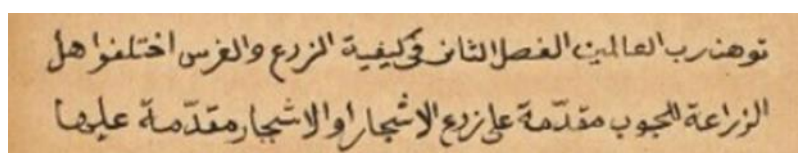 توهند رب العالمين الفصل الثانى فى كيفية الزرع والغرس اختلفوا هل
الزراعة للحبوب مقدّمة على زرع الاشجار او الاشجار مقدّمة عليها